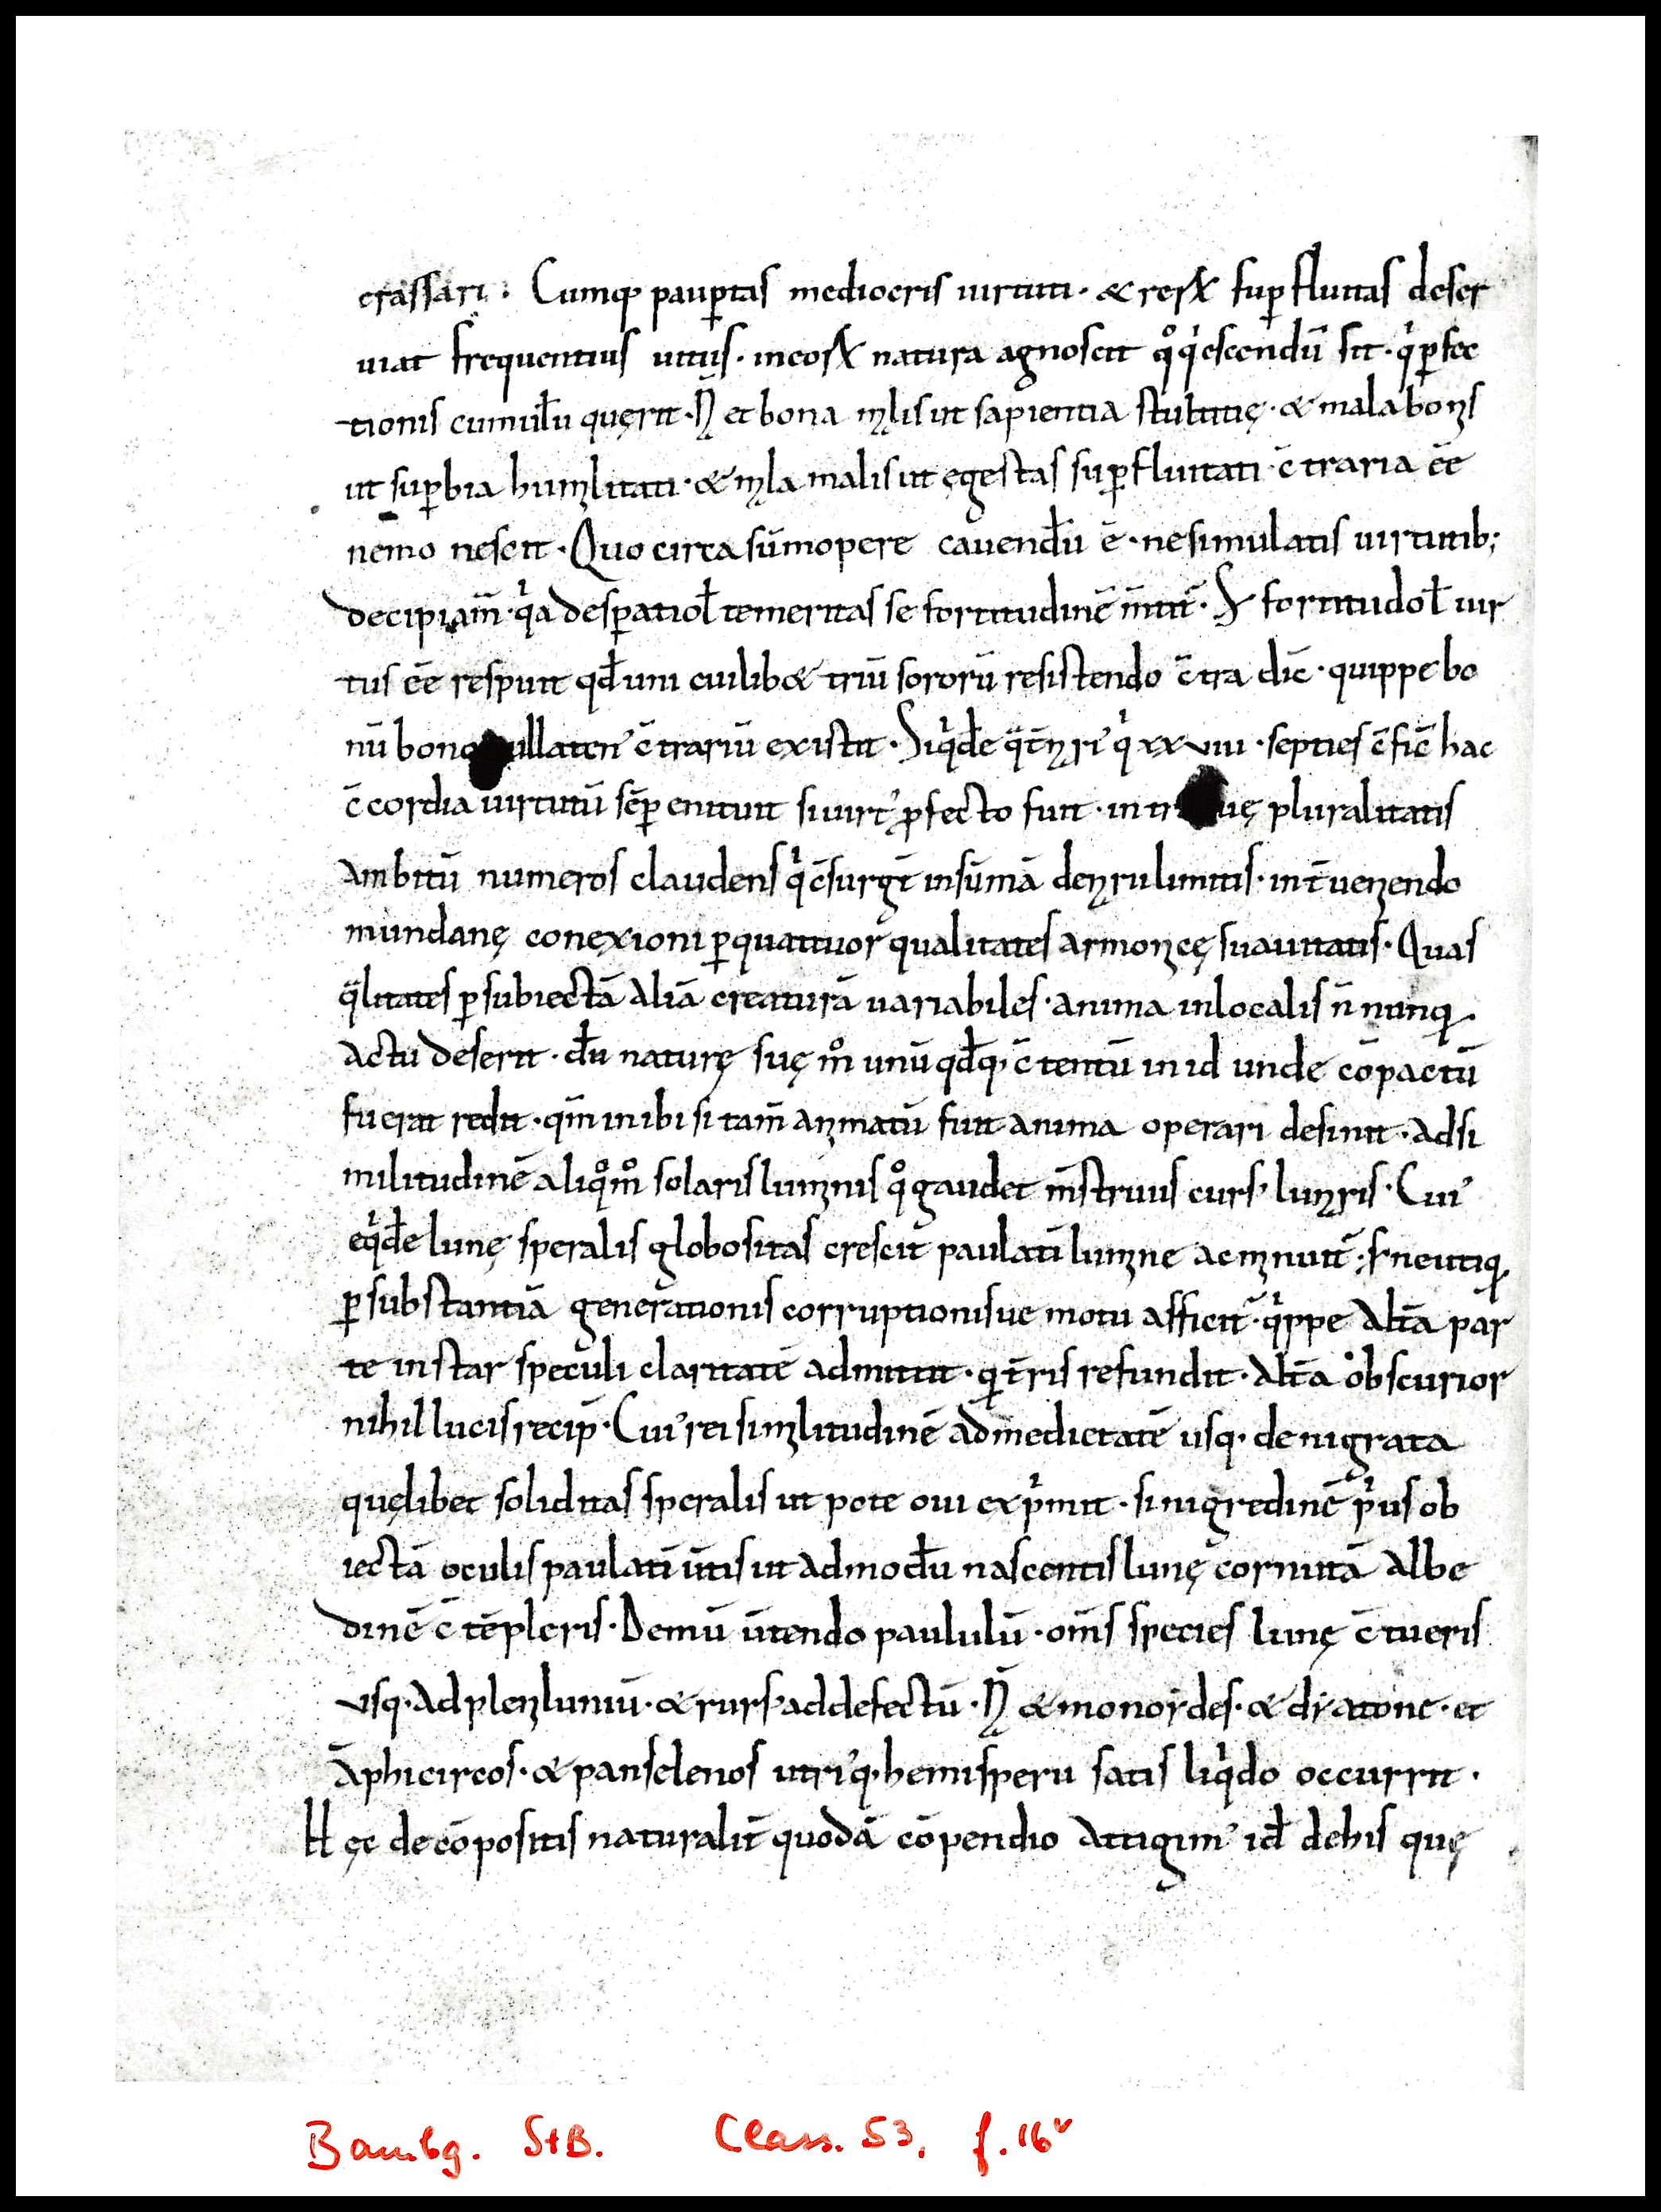 crassari. Cumq; paup̄tas mediocris uirtuti · & rerꝝ sup̄fluitas deser
uiat frequentius uitiis · ineorꝝ natura agnoscit qͦ qͥescendū sit · qͥ p̄fec
tionis cumul̄u quęrit · N̄ et bona ut sapientia stultitię · & mala
ut sup̄bia · & malis ut egestas sup̄fluitati · c̄traria ēē
nemo nescit · Quo circa sūmopere cauend̄u ē · ne simulatis uirtutib;
decipiam̄ · qͥa desp̄atio ł temeritas se fortitudinē m̄tit̄ · fortitudo ł uir
tus ēē respuit qd̄ uni cuilib& triū sororū resistendo c̄tra dic̄ · quippe bo
nū bono c̄trariū existit · xxviii · septies c̄fic̄ hac
c̄cordia uirtutū sēp̄ enituit si uirt᾽ p̄fecto fuit · pluralitatis
ambitū numeros claudens qͥ c̄surgt̄ insūmā limitis ·
mundanę conęxioni p̄ quattuor qualitates suauitatis · Quas
qᵃlitates p̄ subiectā aliā creaturā uariabiles · anima inlocalis n̄ nunq;
actu deserit · d̄u naturę suę mͦ unū qd̄q; c̄tentū in id unde cōpactū
fuerat redit · qm̄ inibi si tam̄ fuit anima operari desinit · adsi
militudinē aliqͦ mͦ solaris qͦ gaudet m̄struus curs᾽ · Cui᾽
eqͥd̄e lunę speralis globositas crescit paulatī ac · neutiq;
p̄ substantiā generationis corruptionisue motu afficit̄ · qͥppe alt̄a par
te instar speculi claritatē admittit · q; t̄ris refundit · alt̄a obscurior
nihil lucis recip̄ · Cui᾽ rei admedietatē usq; denigrata
quęlibet soliditas speralis ut pote oui expͥmit · si nigredinē pͥus ob
iectā oculis paulatī ūtis ut admod̄u nascentis lunę cornutā albe
dinē c̄tēpleris · Demū ūtendo paululū · om̄s species lunę c̄tueris
usq; ad · & rurs᾽ addefectū · N̄ & monoides · & diatone · et
āphicircos · & panselenos utri᾽q; hemisperii satis liqͥdo occurrit ·
Hęc de cōpositis naturalit̄ quodā cōpendio attigim᾽ id̄ dehis quę
Bambg. StB. Class. 53, f. 16ᵛ